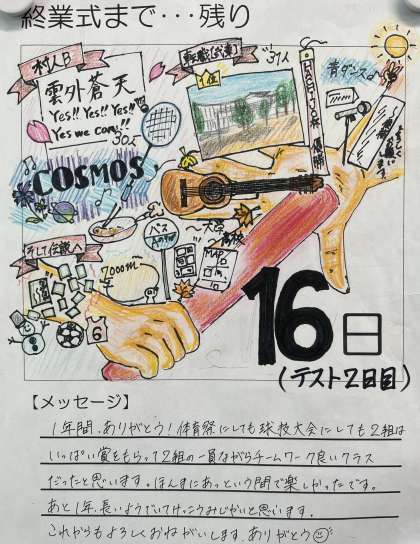 終業式まで・・・残り
村人B
雲外蒼天
Yes!! Yes!! Yes!!
Yes we can!!!
30人
1位
31人
HACHIJO杯 優勝
青ダンス
よろしく
お願いします
COSMOS
そして伝説へ
バス
〜大学
〜高校
MAP
7000m
6
16日
(テスト2日目)
【メッセージ】
1年間、ありがとう！体育祭にしても球技大会にしても2組は
いっぱい賞をもらって2組の一員ながらチームワーク良いクラス
だったと思います。ほんまにあっという間で楽しかったです。
あと1年、長いようでいてけっこうみじかいと思います。
これからもよろしくおねがいします。ありがとう